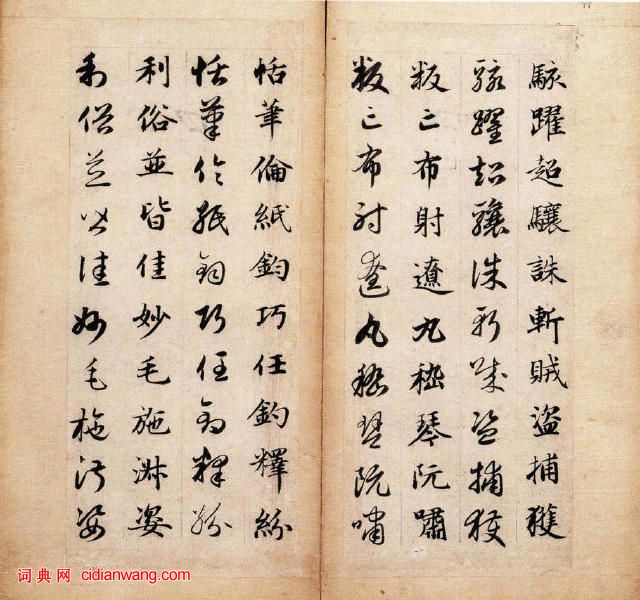 駭躍超驤誅斬賊盜捕獲
駭躍超驤誅斬賊盜捕獲
叛亡布射遼丸嵇琴阮嘯
叛亡布射遼丸嵇琴阮嘯
恬筆倫紙鈞巧任釣釋紛
恬筆倫紙鈞巧任釣釋紛
利俗並皆佳妙毛施淑姿
利俗並皆佳妙毛施淑姿
词典网 cidianwang.com